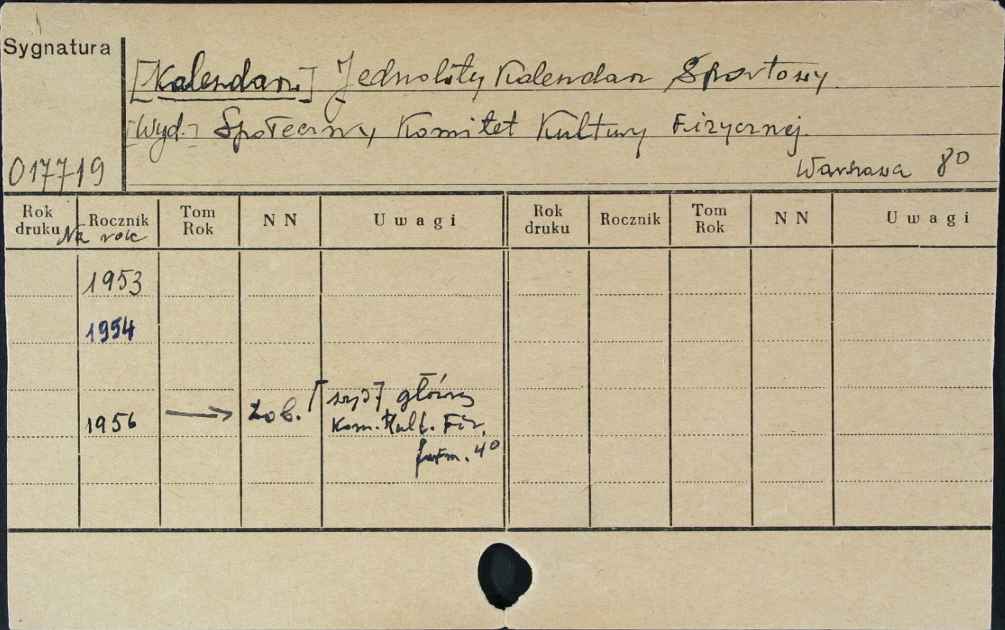 Sygnatura
[Kalendarz] Jednolity Kalendarz Sportowy
[Wyd.] Społeczny Komitet Kultury Fizycznej.
017719
Warszawa 8⁰
Rok druku Rocznik Tom Rok NN Uwagi Rok druku Rocznik Tom Rok NN Uwagi
Na rok
1953
1954
1956 → Zob. [wyd] główny
Kom. Kult. Fiz.
form. 4⁰